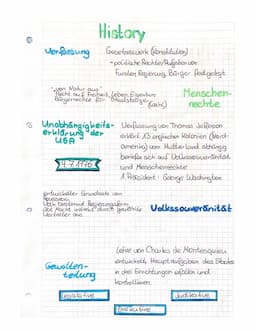 History
Verfassung
Gesetzeswerk (Konstitution)
-politische Rechte/Aufgaben von
Fürsten, Regierung, Bürger festgelegt
"von Natur aus"
Recht auf Freiheit, Leben, Eigentum
Bürgerrechte für Staatsbürger
Menschen-
rechte
Unabhängigkeits-
erklärung der
USA
Verfassung von Thomas Jefferson
erklärt 13 englischer Kolonien (Nord-
amerika) vom Mutterland abhängig
berief sich auf Volkssouveränität
und Menschenrechte
1 Präsident: George Washington
4.7.1776
entwickelter Grundsatz von
Volk bestimmt Regierungsform
übt Macht
Vertreter aus
Volkssouveränität
Lehre von Charles de Montesquieu
entwickelt, Hauptaufgaben des Staates
in drei Einrichtungen erfüllen und
kontrollieren
Gewalten-
teilung
Legislative
Judikative
Exekutive